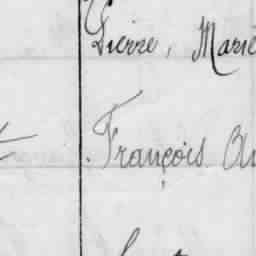 Pierre, Marie
François